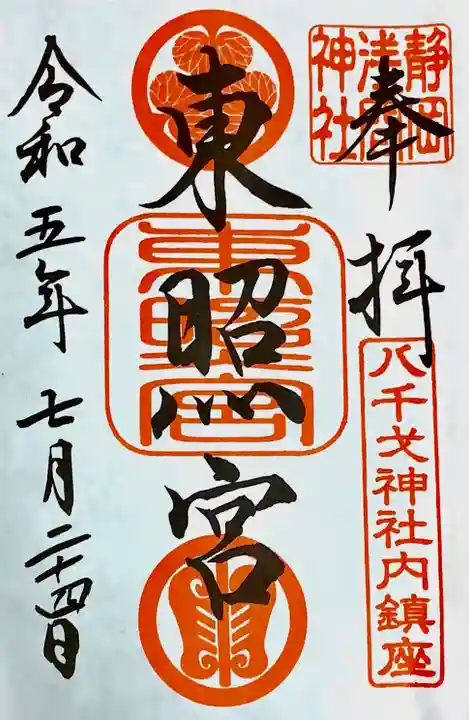 奉拝
静岡
浅間
神社
八千戈神社内鎮座
東照宮
東照宮
令和五年七月二十四日